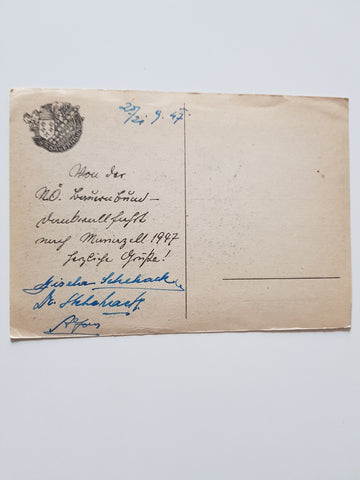 20/21 9. 47.
Von der
NÖ. Bauernbund-
dankwallfahrt
nach Mariazell 1947
herzliche Grüße!
Schehack
Dr.